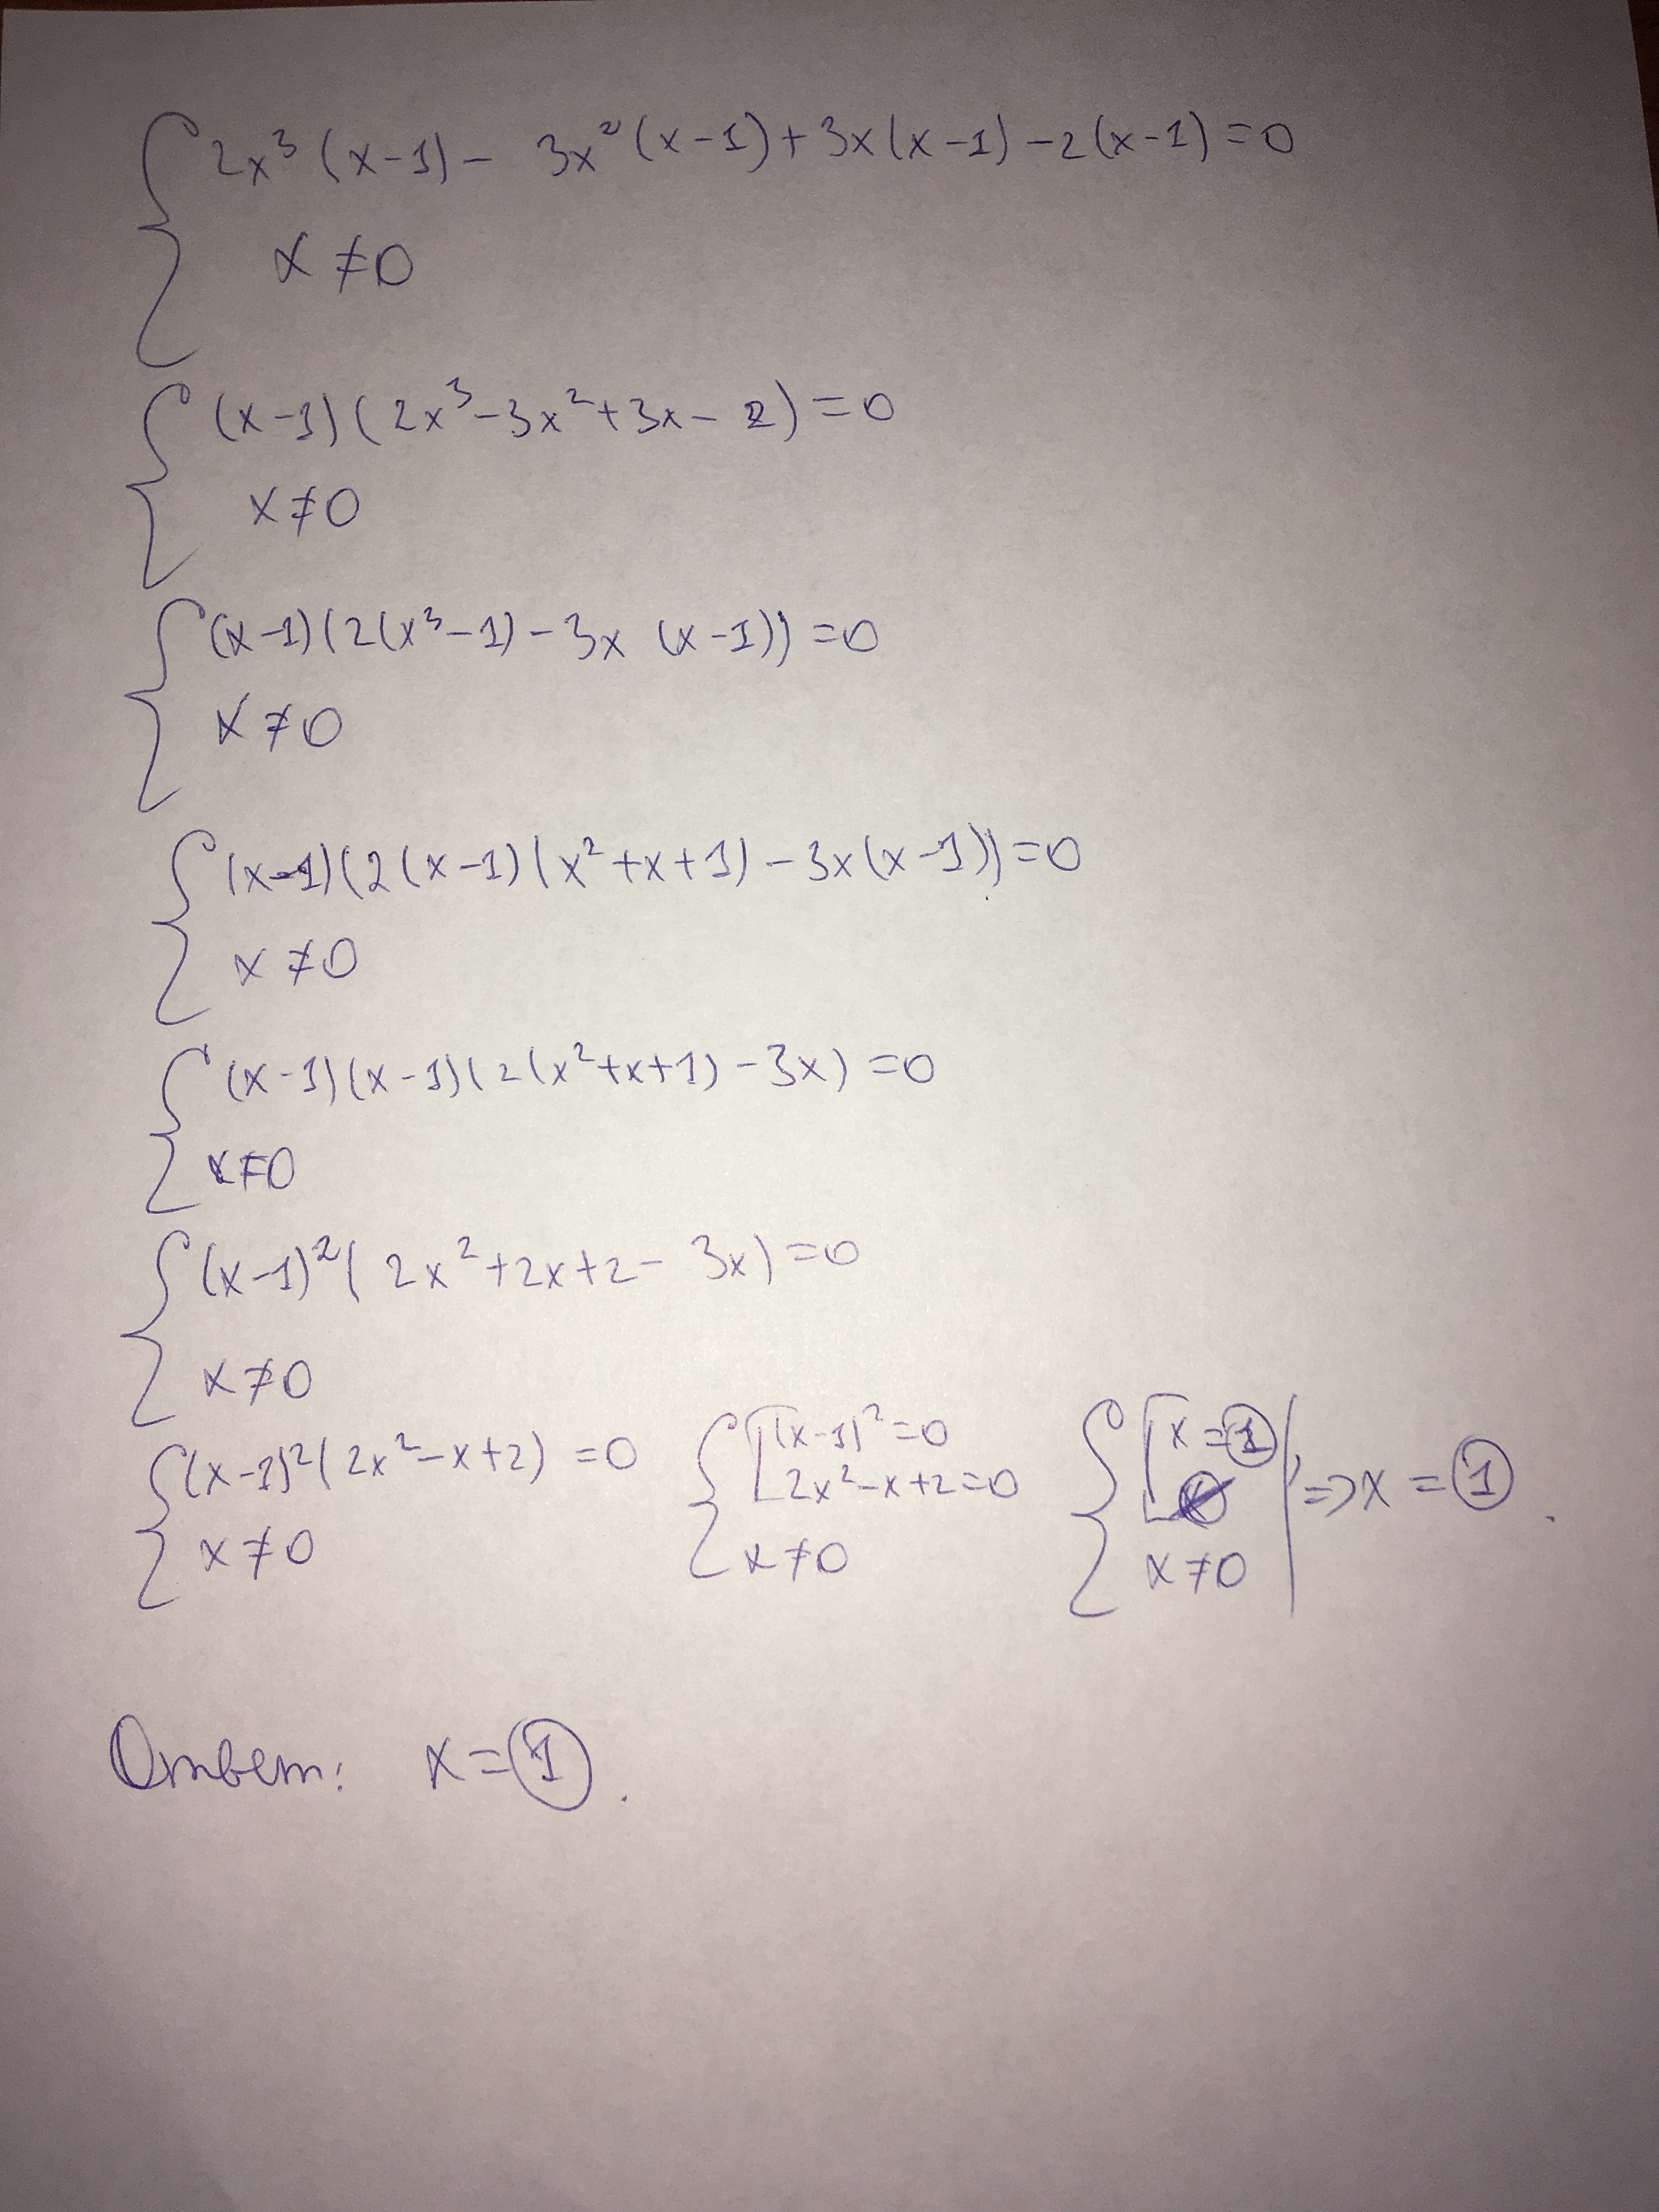 { 2x³(x-1) - 3x²(x-1) + 3x(x-1) - 2(x-1) = 0
x ≠ 0
{ (x-1)(2x³-3x²+3x-2) = 0
x ≠ 0
{ (x-1)(2(x³-1) - 3x (x-1)) = 0
x ≠ 0
{ (x-1)(2(x-1)(x²+x+1) - 3x(x-1)) = 0
x ≠ 0
{ (x-1)(x-1)(2(x²+x+1) - 3x) = 0
x ≠ 0
{ (x-1)²(2x²+2x+2-3x) = 0
x ≠ 0
{ (x-1)²(2x²-x+2) = 0
x ≠ 0
{ [ (x-1)² = 0
2x²-x+2 = 0
x ≠ 0
{ [ x = 1
∅
x ≠ 0
| => x = 1.
Ответ: x = 1.